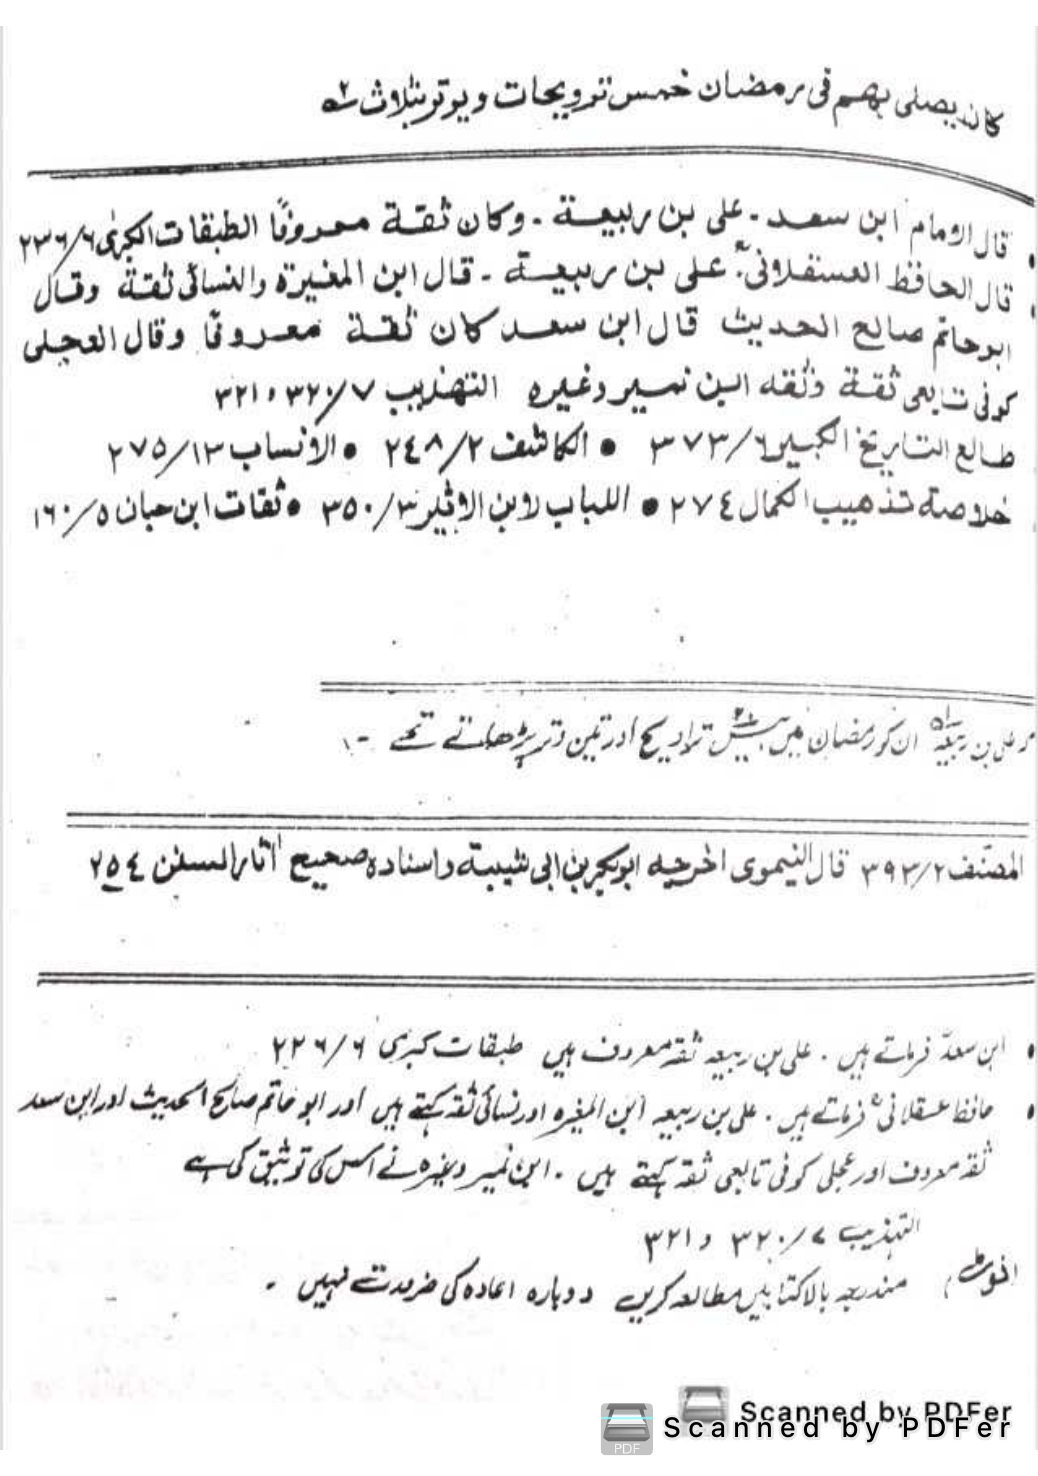 كان يصلى بهم فى رمضان خمس ترويحات ويوتر بثلاث ٢
قال الامام ابن سعد ـ على بن ربيعة ـ وكان ثقة معروفًا الطبقات الكبرىٰ ٦/٢٣٦
قال الحافظ العسقلانىؒ على بن ربيعة ـ قال ابن المغيرة والنسائى ثقة وقال
ابوحاتم صالح الحديث قال ابن سعد كان ثقة معروفًا وقال العجلى
كوفى تابعى ثقة وثقه ابن نمير وغيره التهذيب ٧/٣٢٠ و ٣٢١
طالع التاريخ الكبير ٦/٣٧٣ • الكاشف ٢/٢٤٨ • الانساب ١٣/٢٧٥
خلاصة تذهيب الكمال ٢٧٤ • اللباب لابن الاثير ٣/٣٥٠ • ثقات ابن حبان ٥/١٦٠
علی بن ربیعہؒ ان کو رمضان میں بیس تراویح اور تین وتر پڑھاتے تھے ۔
المصنّف ٢/٣٩٣ قال النيموى اخرجه ابوبكر بن ابى شيبة واسناده صحيح آثار السنن ٢٥٤
• ابن سعدؒ فرماتے ہیں ۔ علی بن ربیعہ ثقہ معروف ہیں طبقات کبریٰ ٦/٢٢٦
• حافظ عسقلانیؒ فرماتے ہیں ۔ علی بن ربیعہ ابن المغیرہ اور نسائی ثقہ کہتے ہیں اور ابو حاتم صالح الحدیث اور ابن سعد
ثقہ معروف اور عجلی کوفی تابعی ثقہ کہتے ہیں ۔ ابن نمیر وغیرہ نے اس کی توثیق کی ہے
التہذیب ٧/٣٢٠ و ٣٢١
نوٹ مندرجہ بالا کتابیں مطالعہ کریں دوبارہ اعادہ کی ضرورت نہیں ۔
Scanned by PDFer
Scanned by PDFer
PDF